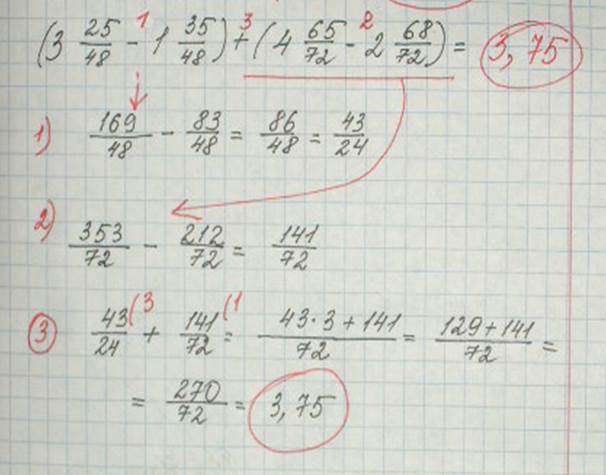 (3 25/48 - 1 35/48) + (4 65/72 - 2 68/72) = 3,75
1 3 2
1) 169/48 - 83/48 = 86/48 = 43/24
2) 353/72 - 212/72 = 141/72
3 43/24 (3 + 141/72 (1 = 43·3+141/72 = 129+141/72 =
= 270/72 = 3,75